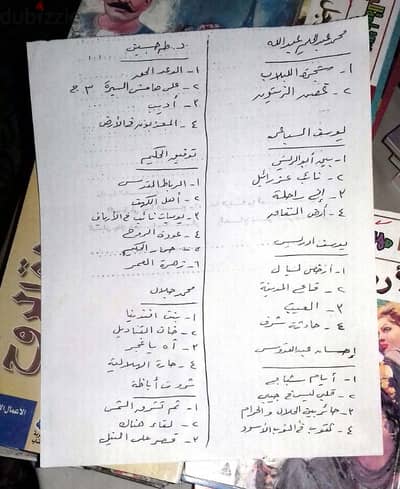 محمد عبد الحليم عبد الله
١- شجرة اللبلاب
٢- غصن الزيتون
يوسف السباعي
١- بين أبو الريش
٢- نائب عزرائيل
٣- إني راحلة
٤- أرض النفاق
يوسف ادريس
١- أرخص ليالي
٢- قاع المدينة
٣- العيب
٤- حادثة شرف
إحسان عبد القدوس
١- أيام شبابي
٢- قلبي ليس في جيبي
٣- حائر بين الحلال والحرام
٤- ثقوب في الثوب الأسود
د. طه حسين
١- الوعد الحق
٢- على هامش السيرة ٣ ج
٣- أديب
٤- المعذبون في الأرض
توفيق الحكيم
١- الرباط المقدس
٢- أهل الكهف
٣- يوميات نائب في الأرياف
٤- عودة الروح
٥- حمار الحكيم
٦- زهرة العمر
محمد جلال
١- بنت افندينا
٢- خان القناديل
٣- آه يا غجر
٤- حارة الهلالية
ثروت أباظة
١- ثم تشرق الشمس
٢- لقاء هناك
٣- قصر على النيل
dubizzle
الروح